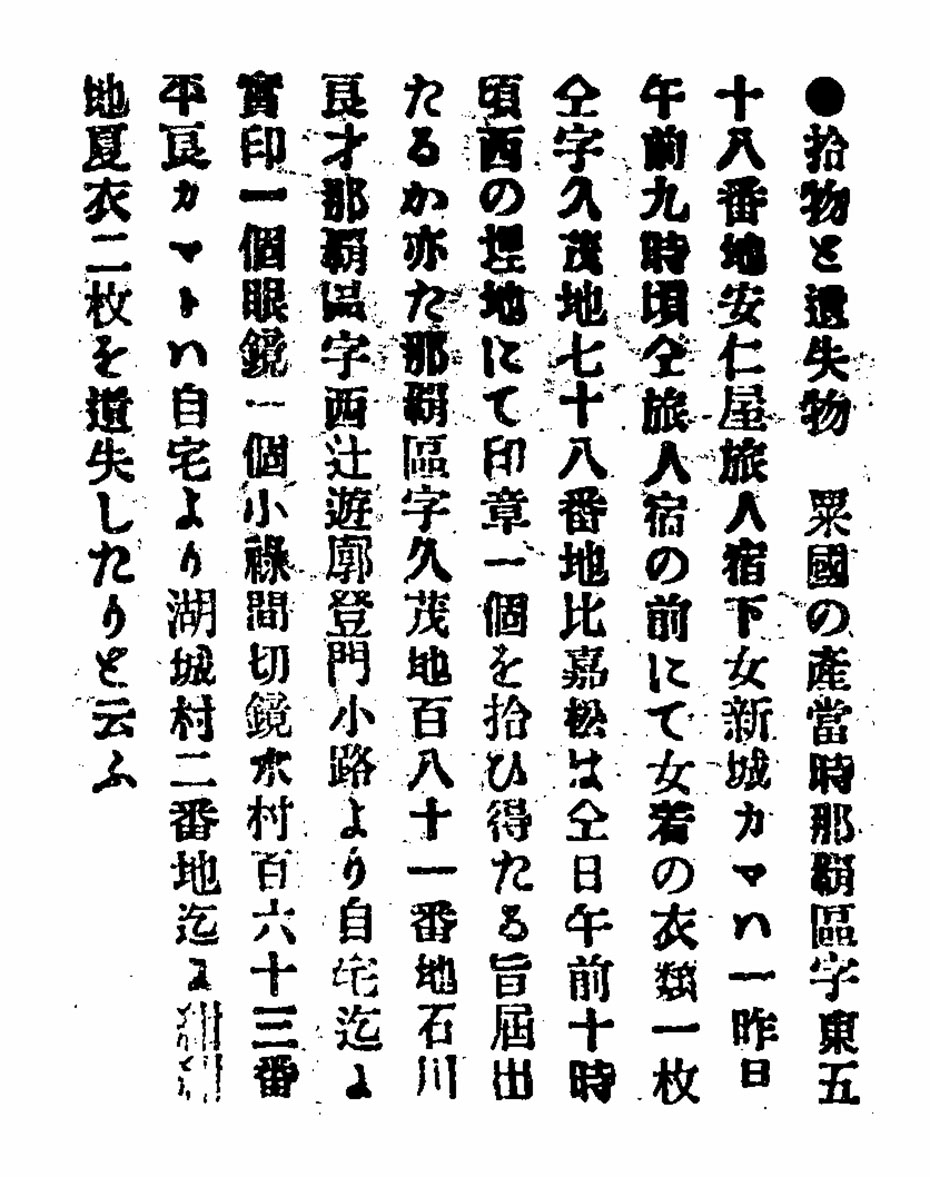 ●拾物と遺失物　粟國の產當時那覇區字東五
十八番地安仁屋旅人宿下女新城カマハ一昨日
午前九時頃仝旅人宿の前にて女着の衣類一枚
仝字久茂地七十八番地比嘉松は仝日午前十時
頃西の埋地にて印章一個を拾ひ得たる旨屆出
たるか亦た那覇區字久茂地百八十一番地石川
良才那覇區字西辻遊廓登門小路より自宅迄に
實印一個眼鏡一個小祿間切鏡水村百六十三番
平良カマトハ自宅より湖城村二番地迄に紺
地夏衣二枚を遺失したりと云ふ